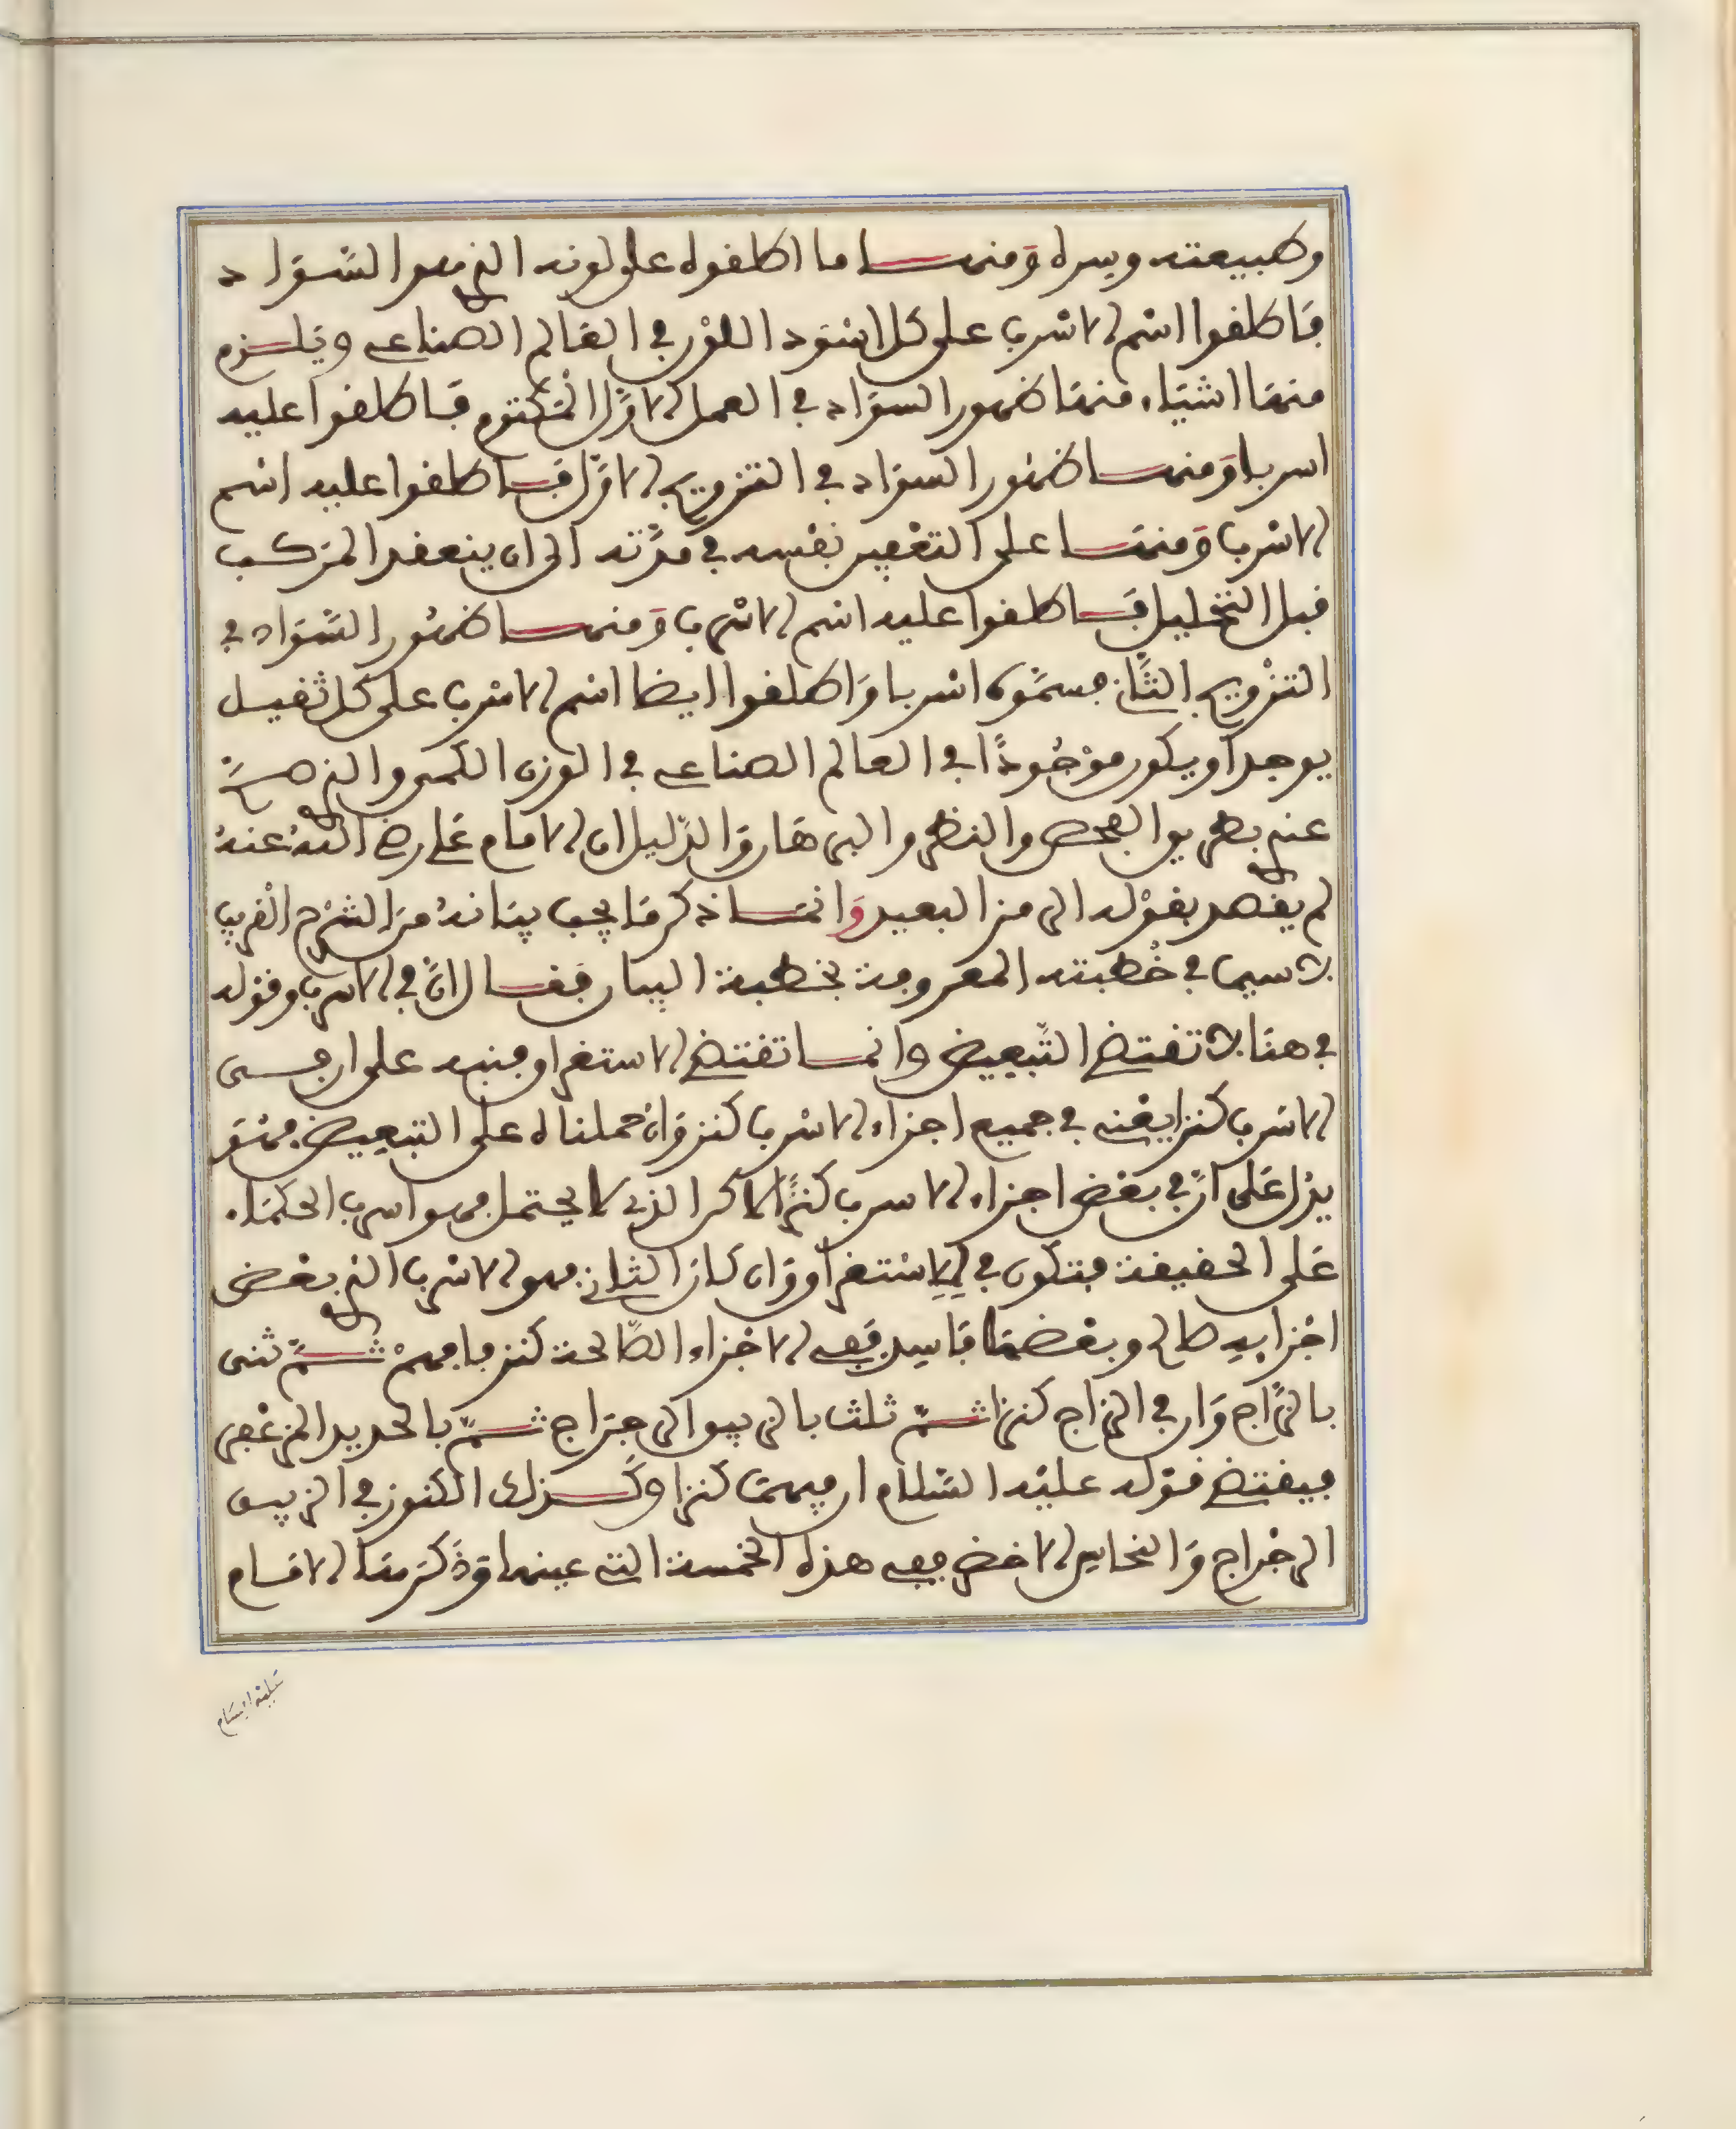 وطبيعته وسره ومنها ما اطلقوه على لونه الذي هو السواد
فاطلقوا اسم الاسرب على كل اسود اللون في العالم الصناعي ويلزم
منها اشياء منها ظهور السواد في العمل الاول المكتوم فاطلقوا عليه
اسربا ومنها ظهور السواد في التزويج الاول فاطلقوا عليه اسم
الاسرب ومنها على التعفين نفسه في مدته الى ان ينعقد المركب
قبل التحليل فاطلقوا عليه اسم الاسرب ومنها ظهور السواد في
التزويج الثاني فسموه اسربا واطلقوا ايضا اسم الاسرب على كل ثقيل
يوجد او يكون موجودا في العالم الصناعي في الوزن الكمي والذي صح
عندي بطريق الفحص والنظر والبرهان والدليل ان الامام علي رضي الله عنه
لم يقصد بقوله الرمز البعيد وانما ذكر ما يجب بيانه من الشرح القريب
لا سيما في خطبته المعروفة بخطبة البيان فقال ان في الاسرب وقوله
في هنا لا تقتضي التبعيض وانما تقتضي الاستغراق فنبه على ان في
الاسرب كنزا يعني في جميع اجزاء الاسرب كنز وان حملناه على التبعيض فهو
يدل على ان في بعض اجزاء الاسرب كنزا لاكن الذي لا يحتمل فهو اسرب الحكماء
على الحقيقة فتكون في للاستغراق وان كان الثاني فهو الاسرب الذي بعض
اجزايه صالح وبعضها فاسد ففي الاجزاء الصالحة كنز فافهم ثم ثنى
بالزاج وان في الزاج كنزا ثم ثلث بالزيبق الرجراج ثم بالحديد المزعفر
فيقتضي قوله عليه السلام ان فيهما كنزا وكذلك الكنوز في الزيبق
الرجراج والنحاس الاخضر ففي هذه الخمسة التي عينها وذكرها الامام
عليه السلام